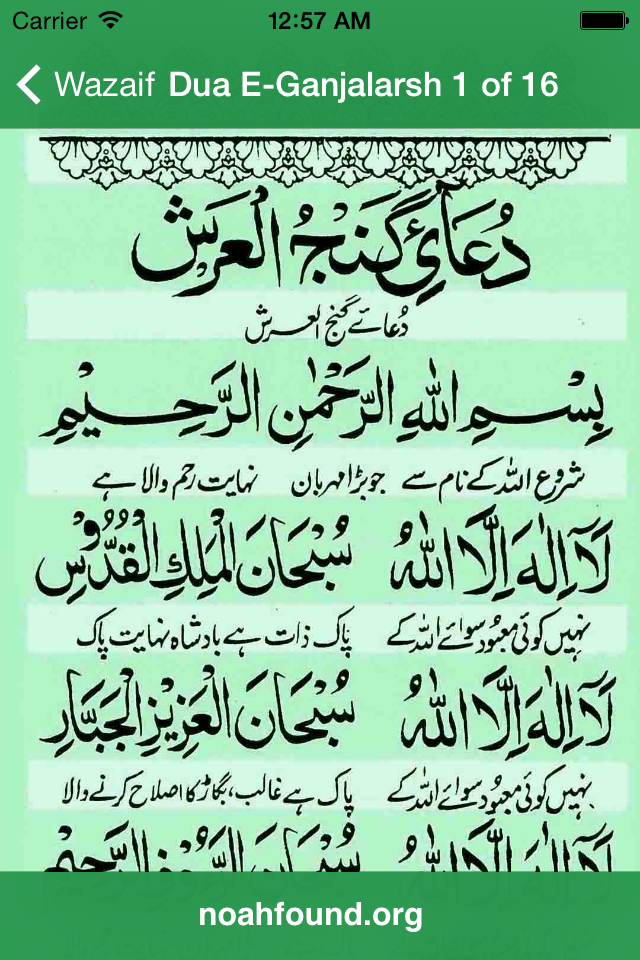 Carrier 12:57 AM
Wazaif Dua E-Ganjalarsh 1 of 16
دُعَائِ گَنجُ الْعَرَش
دُعائے گنج العرش
بِسْمِ اللهِ الرَّحْمٰنِ الرَّحِيْمِ
شروع اللہ کے نام سے جو بڑا مہربان نہایت رحم والا ہے
لَآ اِلٰهَ اِلَّا اللهُ سُبْحَانَ الْمَلِكِ الْقُدُّوْسِ
نہیں کوئی معبود سوائے اللہ کے پاک ذات ہے بادشاہ نہایت پاک
لَآ اِلٰهَ اِلَّا اللهُ سُبْحَانَ الْعَزِيْزِ الْجَبَّارِ
نہیں کوئی معبود سوائے اللہ کے پاک ہے غالب، بگاڑ کا اصلاح کرنے والا
لَآ اِلٰهَ اِلَّا اللهُ سُبْحَانَ الرَّءُوْفِ الرَّحِيْمِ
noahfound.org